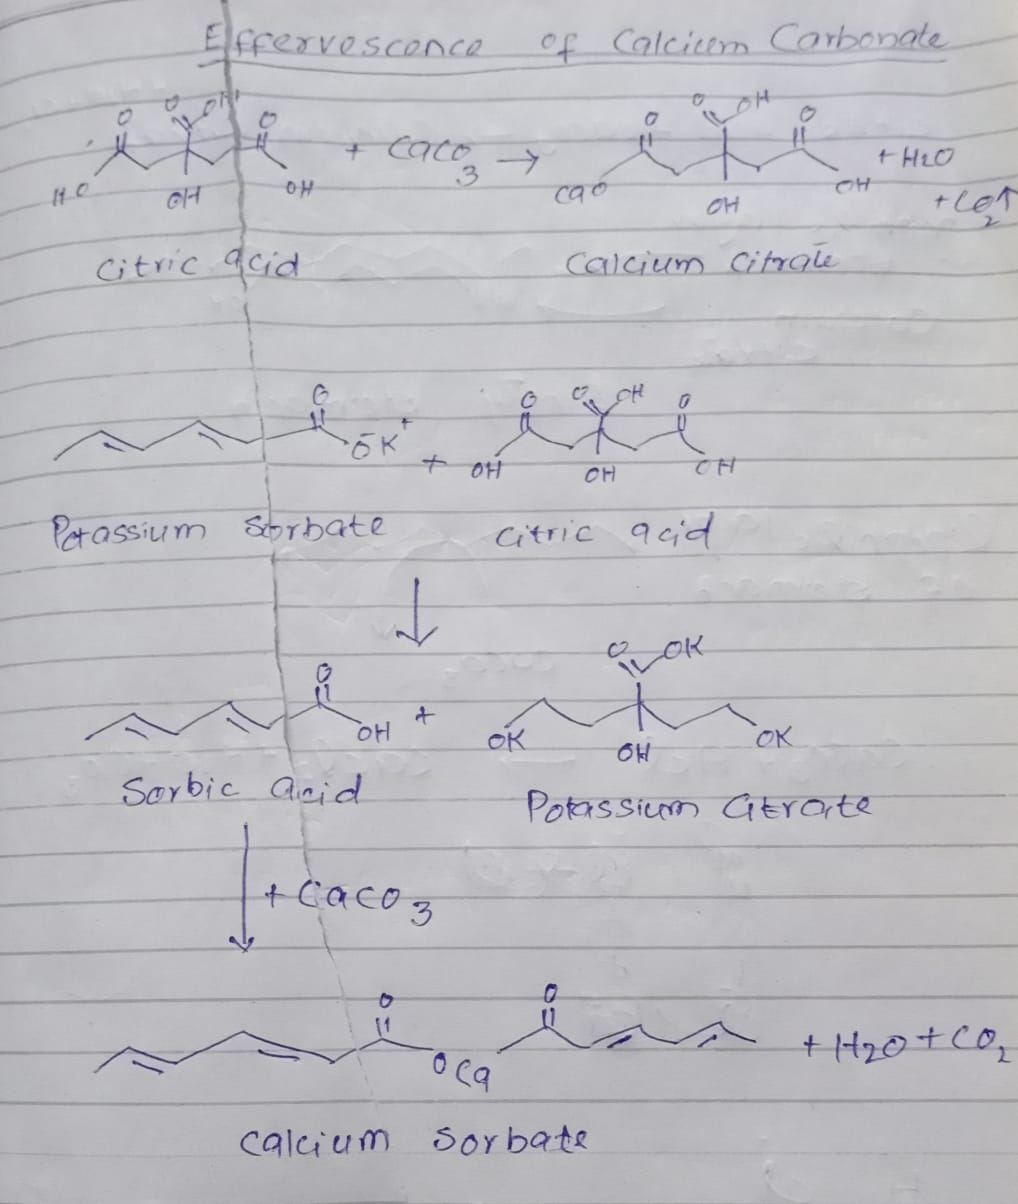 Effervescence of Calcium Carbonate
O O OH O
HO OH OH + CaCO3 →
O O OH O
CaO OH OH + H2O
+ CO2↑
Citric acid Calcium Citrate
O O OH O
ŌK+ + OH OH OH
Potassium Sorbate Citric acid
↓
O O OK
OH + OK OH OK
Sorbic acid Potassium Citrate
↓ + CaCO3
O O
O Ca + H2O + CO2
Calcium Sorbate